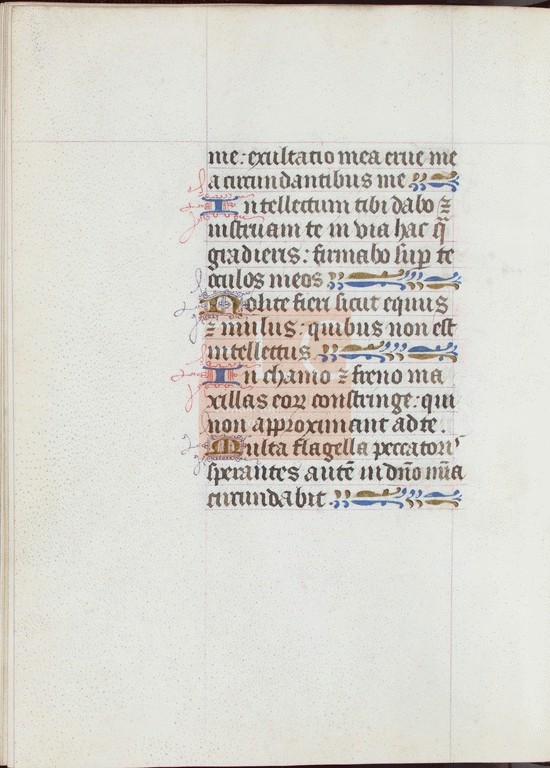 me: exultatio mea erue me
a circundantibus me
Intellectum tibi dabo ⁊
instruam te in via hac q̄
gradieris: firmabo sup te
oculos meos
Nolite fieri sicut equus
⁊ mulus: quibus non est
intellectus
In chamo ⁊ freno ma
xillas eoꝝ constringe: qui
non approximant ad te.
Multa flagella peccatori'
sperantes autē in dn̄o mīa
circundabit.